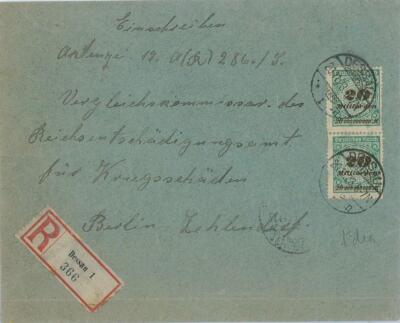 Einschreiben
Aktenz. 12. A(R) 286./J.
Vergleichskommissar des
Reichsentschädigungsamt
für Kriegsschäden
Berlin-Zehlendorf
DESSAU
20
Milliarden
DESSAU
20
Milliarden
R
Dessau 1
366